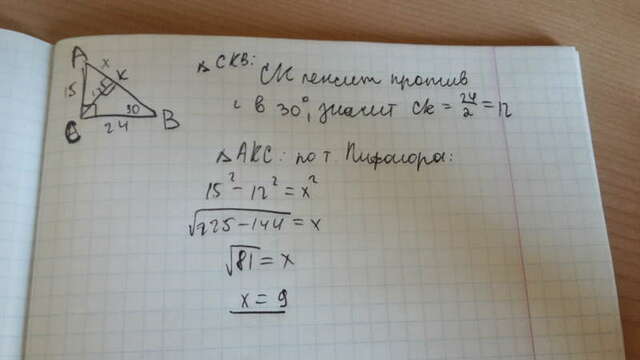 A
x
15
K
C
24
30
B
△ CKB: CK лежит против
∠ в 30°, значит CK = 24/2 = 12
△ AKC: по т. Пифагора:
15² - 12² = x²
√225-144 = x
√81 = x
x = 9